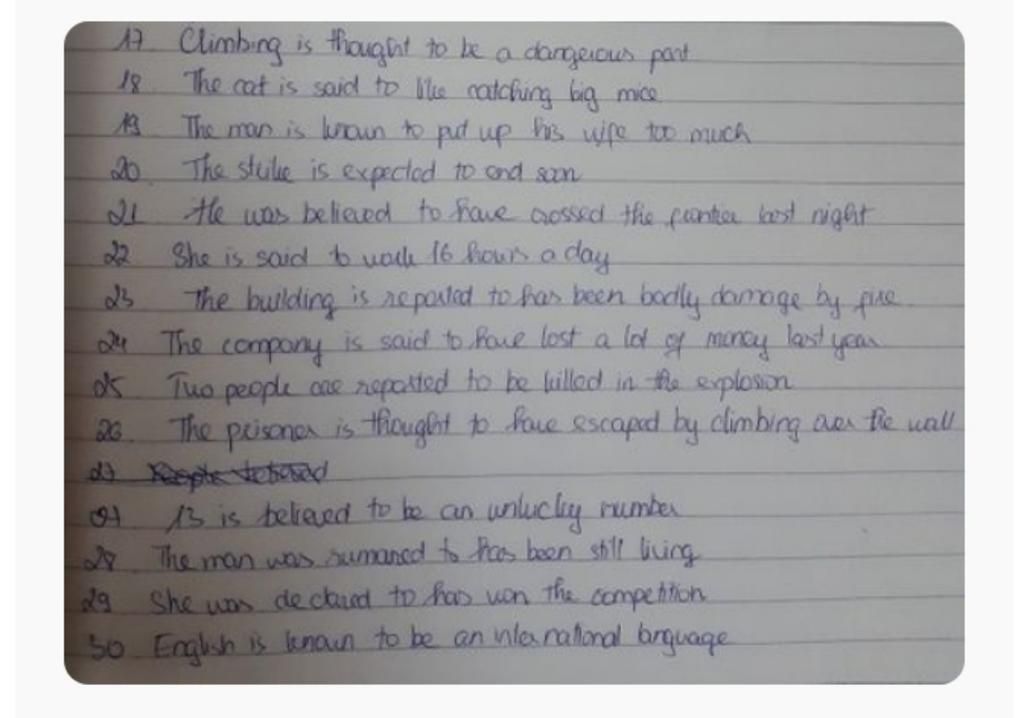 17. Climbing is thought to be a dangerous part
18. The cat is said to like catching big mice
19 The man is known to put up his wife too much
20. The strike is expected to end soon
21 He was believed to have crossed the frontier last night
22 She is said to work 16 hours a day
23 The building is reported to has been badly damage by fire
24 The company is said to have lost a lot of money last year
25 Two people are reported to be killed in the explosion
26. The prisoner is thought to have escaped by climbing over the wall
27 People
13 is believed to be an unlucky number
28 The man was rumared to has been still living
29 She was declared to has won the competition
30 English is known to be an international language